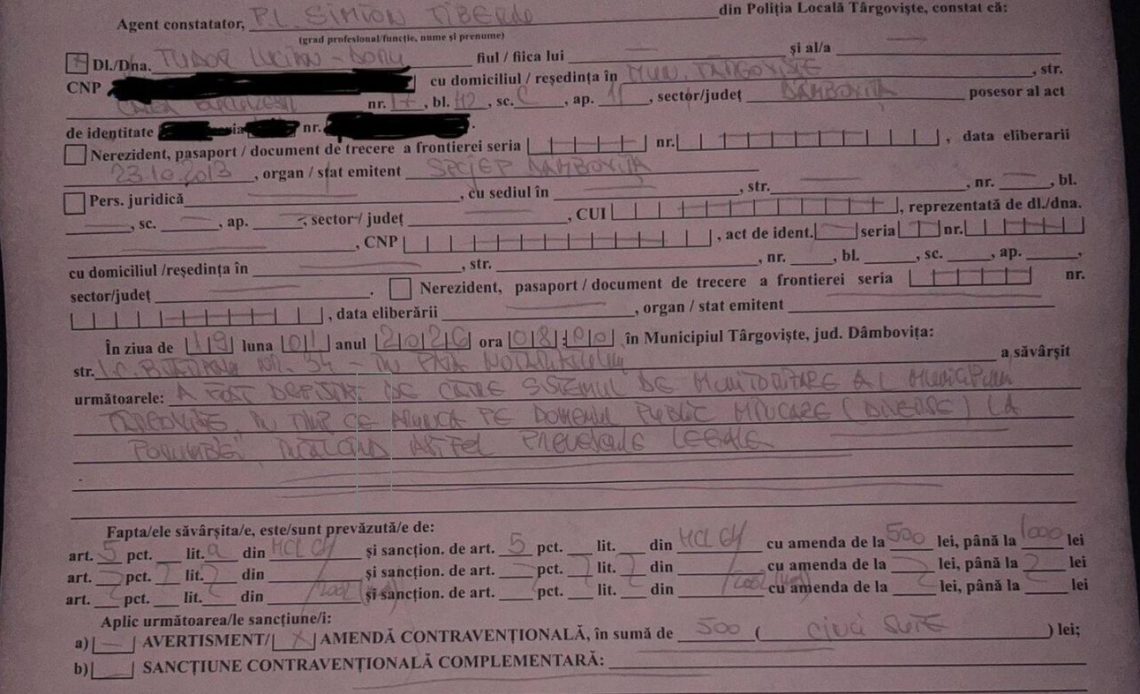 Agent constatator, P.L. SIMION TIBERIU din Poliția Locală Târgoviște, constat că:
(grad profesional/funcție, nume și prenume)
Dl./Dna. TUDOR LUCIAN - fiul / fiica lui — și al/a —
CNP cu domiciliul / reședința în MUN. TÂRGOVIȘTE, str.
CALEA nr. , bl. , sc. C, ap. 11, sector/județ DÂMBOVIȚA posesor al act
de identitate nr.
Nerezident, pașaport / document de trecere a frontierei seria nr. , data eliberarii
23.10.2013, organ / stat emitent SPCJEP DÂMBOVIȚA
Pers. juridică , cu sediul în , str. , nr. , bl.
, sc. , ap. , sector / județ , CUI , reprezentată de dl./dna.
, CNP , act de ident. seria nr.
cu domiciliul /reședința în , str. , nr. , bl. , sc. , ap. ,
sector/județ . Nerezident, pașaport / document de trecere a frontierei seria nr.
, data eliberării , organ / stat emitent
În ziua de 19 luna 01 anul 2026 ora 08:00, în Municipiul Târgoviște, jud. Dâmbovița:
str. I.C. BRĂTIANU NR. 34 - IN FATA a săvârșit
următoarele: A FOST DE CATRE SISTEMUL DE MONITORIZARE AL MUNICIPIULUI
TÂRGOVIȘTE, IN TIMP CE ARUNCA PE DOMENIUL PUBLIC MÂNCARE (DIVERSE) LA
PORUMBEI, ASTFEL PREVEDERILE LEGALE
Fapta/ele săvârșita/e, este/sunt prevăzută/e de:
art. 5 pct. lit. a din HCL 64 și sancțion. de art. 5 pct. lit. din HCL 64 cu amenda de la 500 lei, până la 1000 lei
art. pct. lit. din și sancțion. de art. pct. lit. din cu amenda de la lei, până la lei
art. pct. lit. din și sancțion. de art. pct. lit. din cu amenda de la lei, până la lei
Aplic următoarea/le sancțiune/i:
a) AVERTISMENT/ X AMENDĂ CONTRAVENȚIONALĂ, în sumă de 500 ( CINCI SUTE ) lei;
b) SANCȚIUNE CONTRAVENȚIONALĂ COMPLEMENTARĂ: